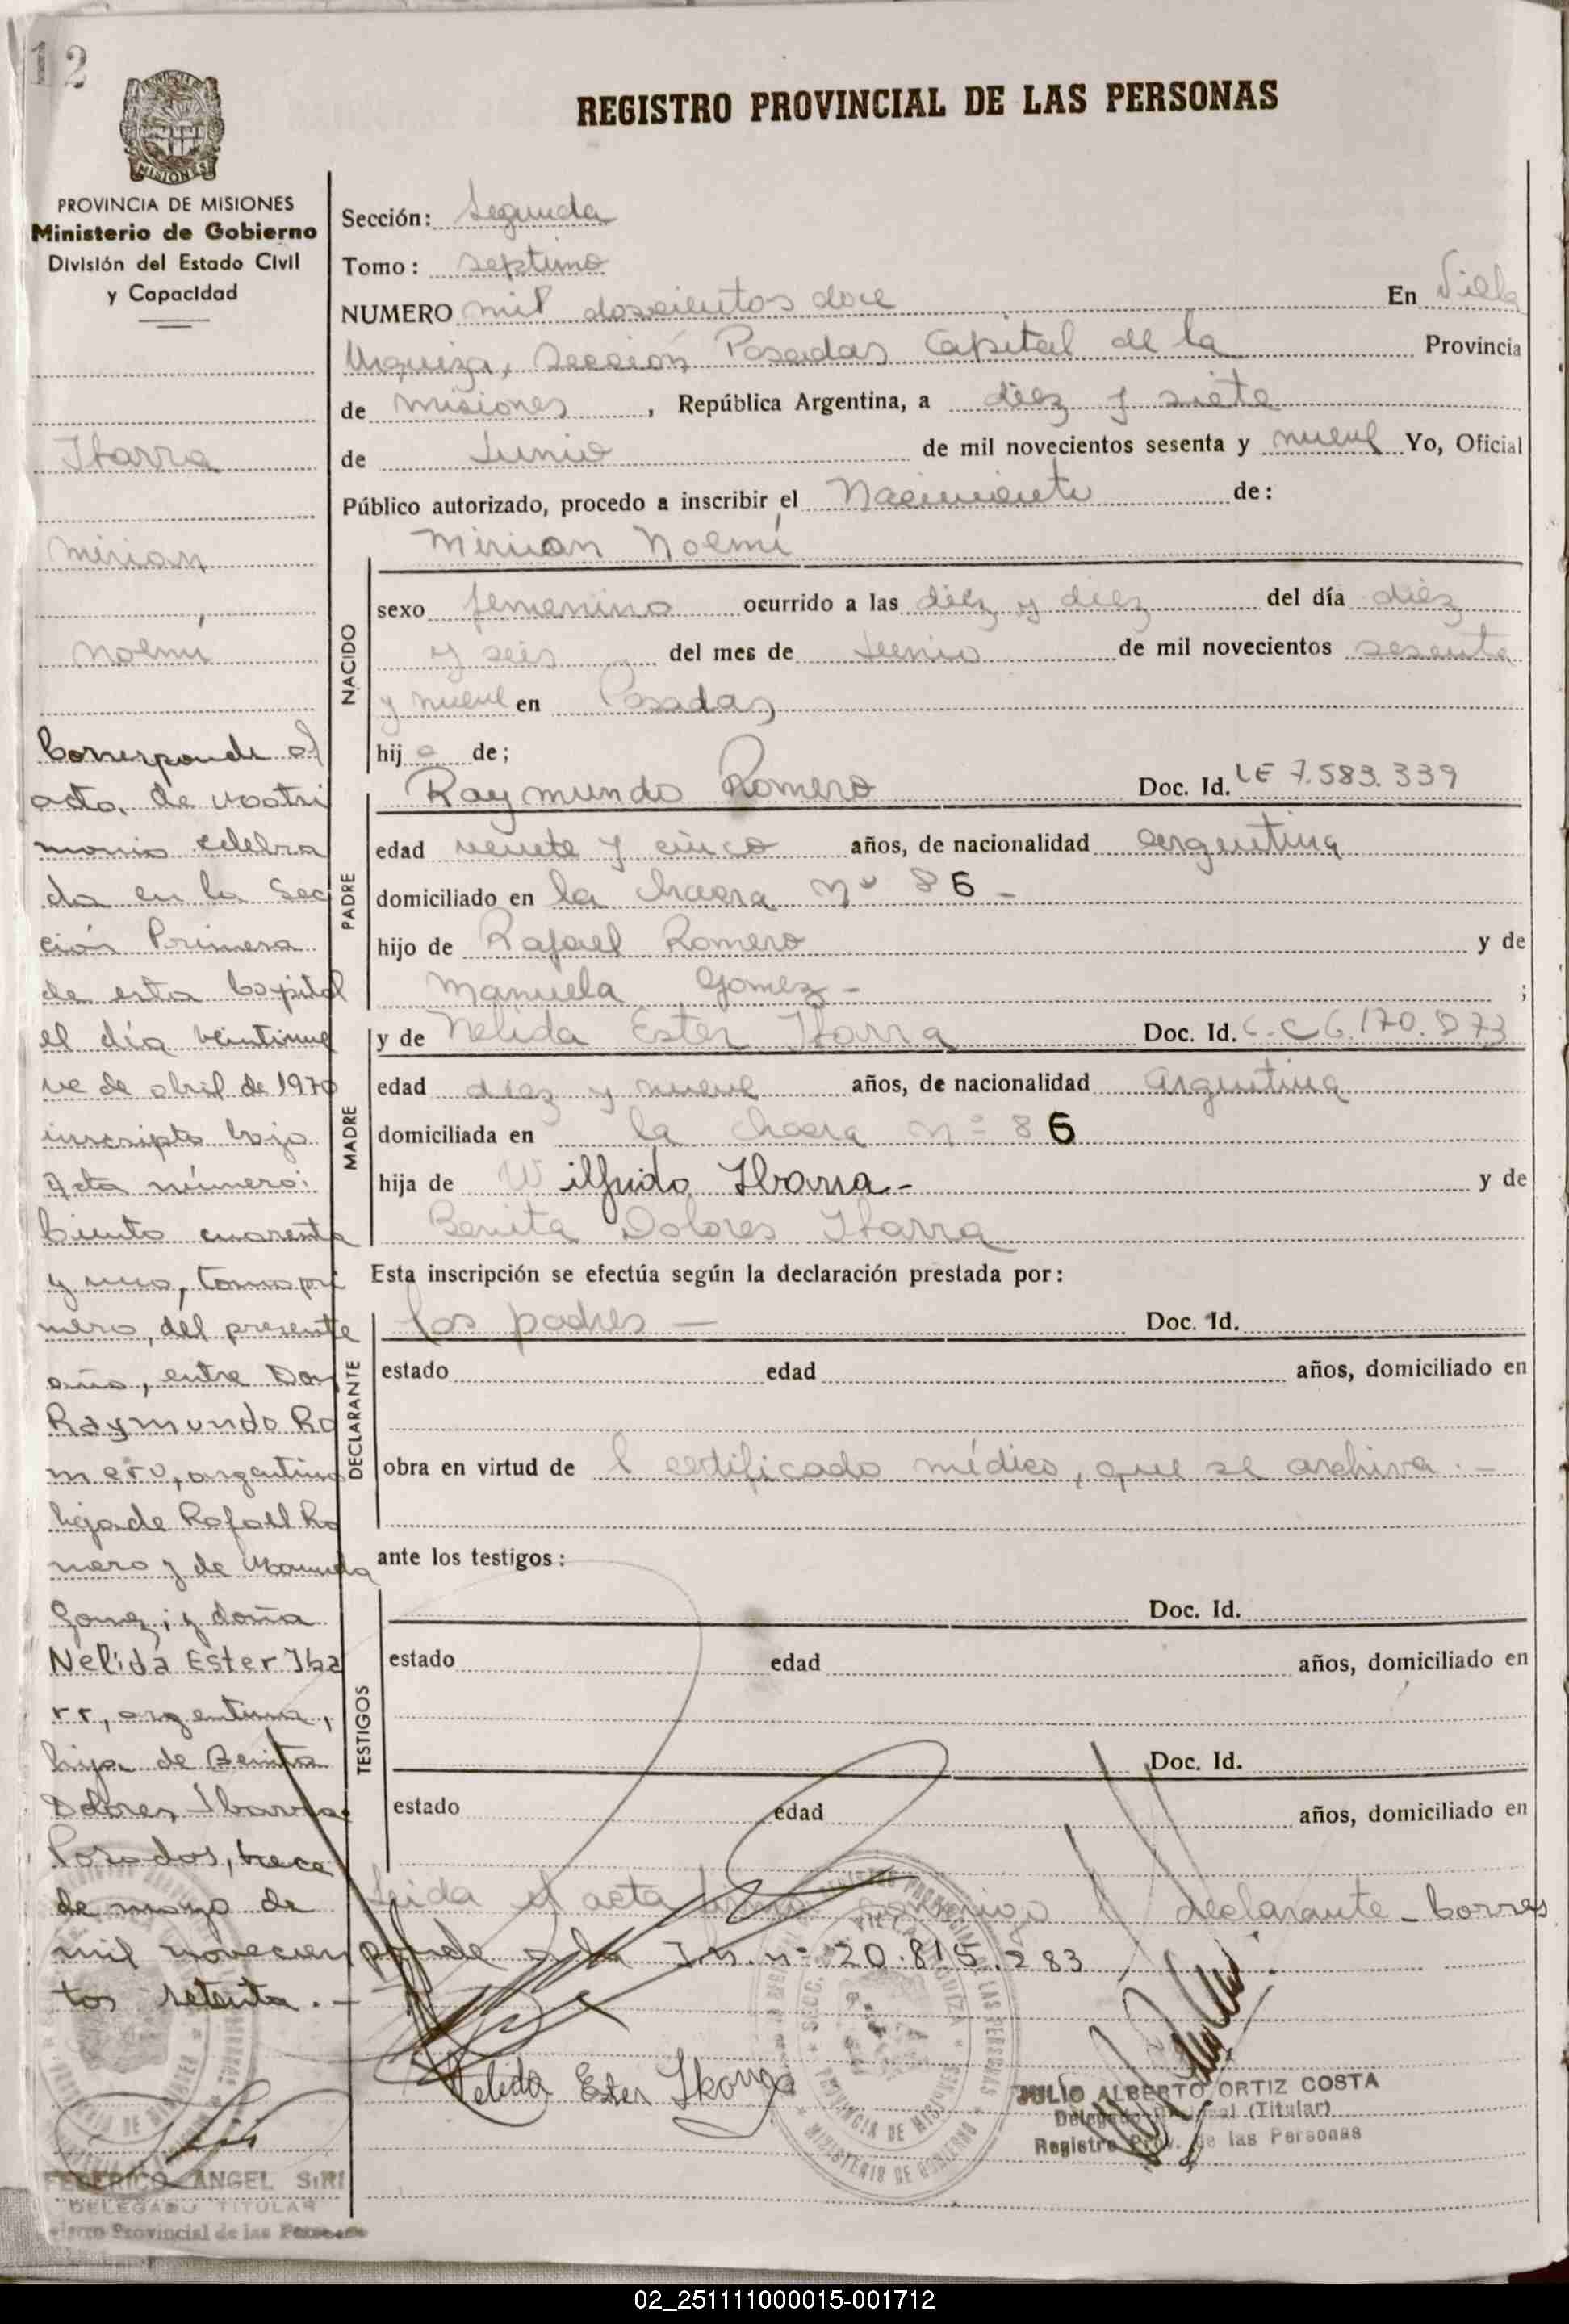 12
REGISTRO PROVINCIAL DE LAS PERSONAS
MISIONES
PROVINCIA DE MISIONES
Ministerio de Gobierno
División del Estado Civil
y Capacidad
Ibarra
Mirian
Noemí
Corresponde al
acta de matri
monio celebra
da en la Sec
ción Primera
de esta Capital
el día veintinue
ve de abril de 1970
inscripta bajo
Acta número:
Ciento cuarenta
y uno, tomo pri
mero, del presente
año, entre Don
Raymundo Ro
mero, argentino
hijo de Rafael Ro
mero y de Manuela
Gomez; y doña
Nelida Ester Iba
rr, argentina,
hija de Benita
Dolores Ibarra
Posadas, trece
de mayo de
mil novecien
tos setenta.-
FEDERICO ANGEL SIRI
DELEGADO TITULAR
Provincial de las Personas
Sección: Segunda
Tomo: septimo
NUMERO mil doscientos doce En Villa
Urquiza, Sección Posadas Capital de la Provincia
de Misiones, República Argentina, a diez y siete
de Junio de mil novecientos sesenta y nueve Yo, Oficial
Público autorizado, procedo a inscribir el Nacimiento de:
Mirian Noemí
NACIDO
sexo femenino ocurrido a las diez y diez del día diez
y seis del mes de Junio de mil novecientos sesenta
y nueve en Posadas
hija de;
Raymundo Romero Doc. Id. LE 7.583.339
PADRE
edad veinte y cinco años, de nacionalidad argentina
domiciliado en la chacra nº 86 -
hijo de Rafael Romero y de
Manuela Gomez - ;
y de Nelida Ester Ibarra Doc. Id. C.C 6.170.873
MADRE
edad diez y nueve años, de nacionalidad argentina
domiciliada en la chacra nº 86
hija de Wilfrido Ibarra.- y de
Benita Dolores Ibarra
Esta inscripción se efectúa según la declaración prestada por:
los padres — Doc. Id.
DECLARANTE
estado edad años, domiciliado en
obra en virtud de l certificado médico, que se archiva.-
ante los testigos:
TESTIGOS
Doc. Id.
estado edad años, domiciliado en
Doc. Id.
estado edad años, domiciliado en
Leida el acta firma conmigo l declarante - Corres
ponde a la I.N. nº 20.815.283
Nelida Ester Ibarra
JULIO ALBERTO ORTIZ COSTA
Delegado (Titular)
Registro Prov. de las Personas
02_251111000015-001712